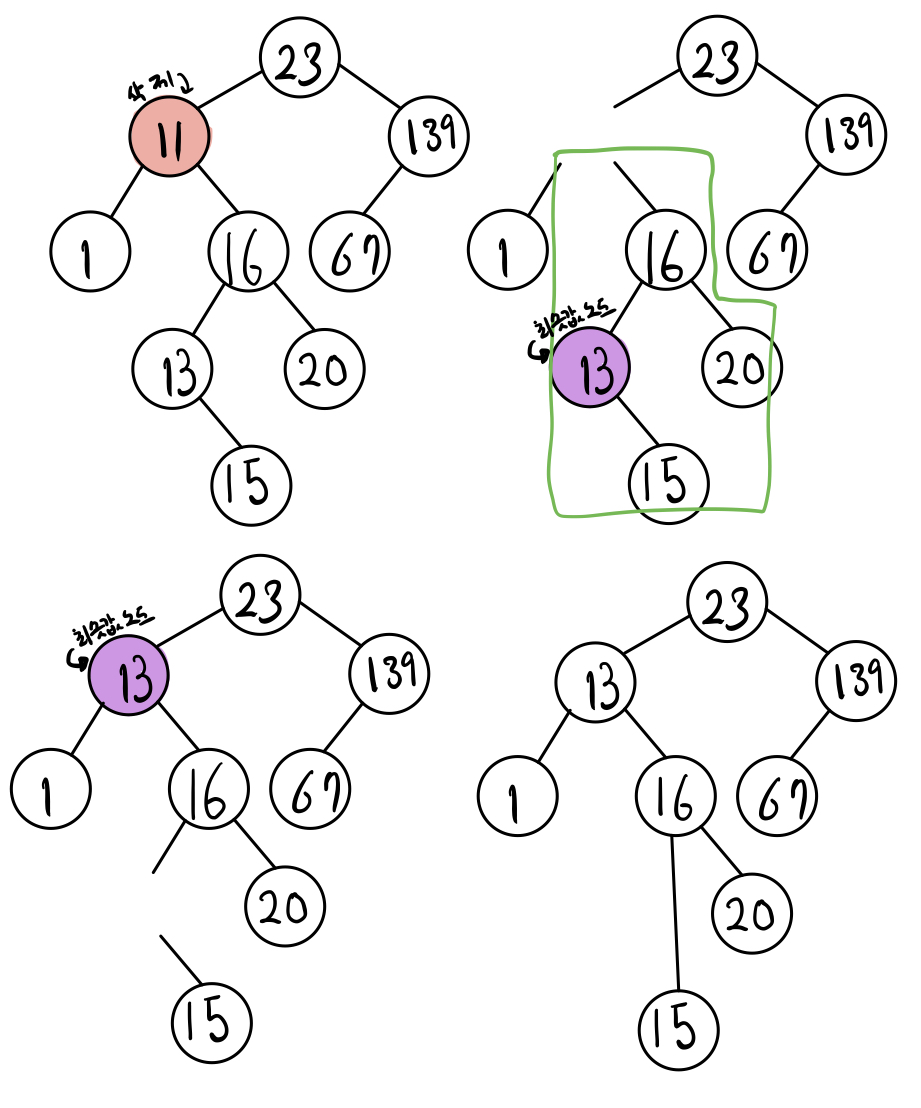 23
삭제!
11
139
1
16
67
13
20
15
23
139
1
16
67
최솟값 노드
13
20
15
23
최솟값 노드
13
139
1
16
67
20
15
23
13
139
1
16
67
20
15